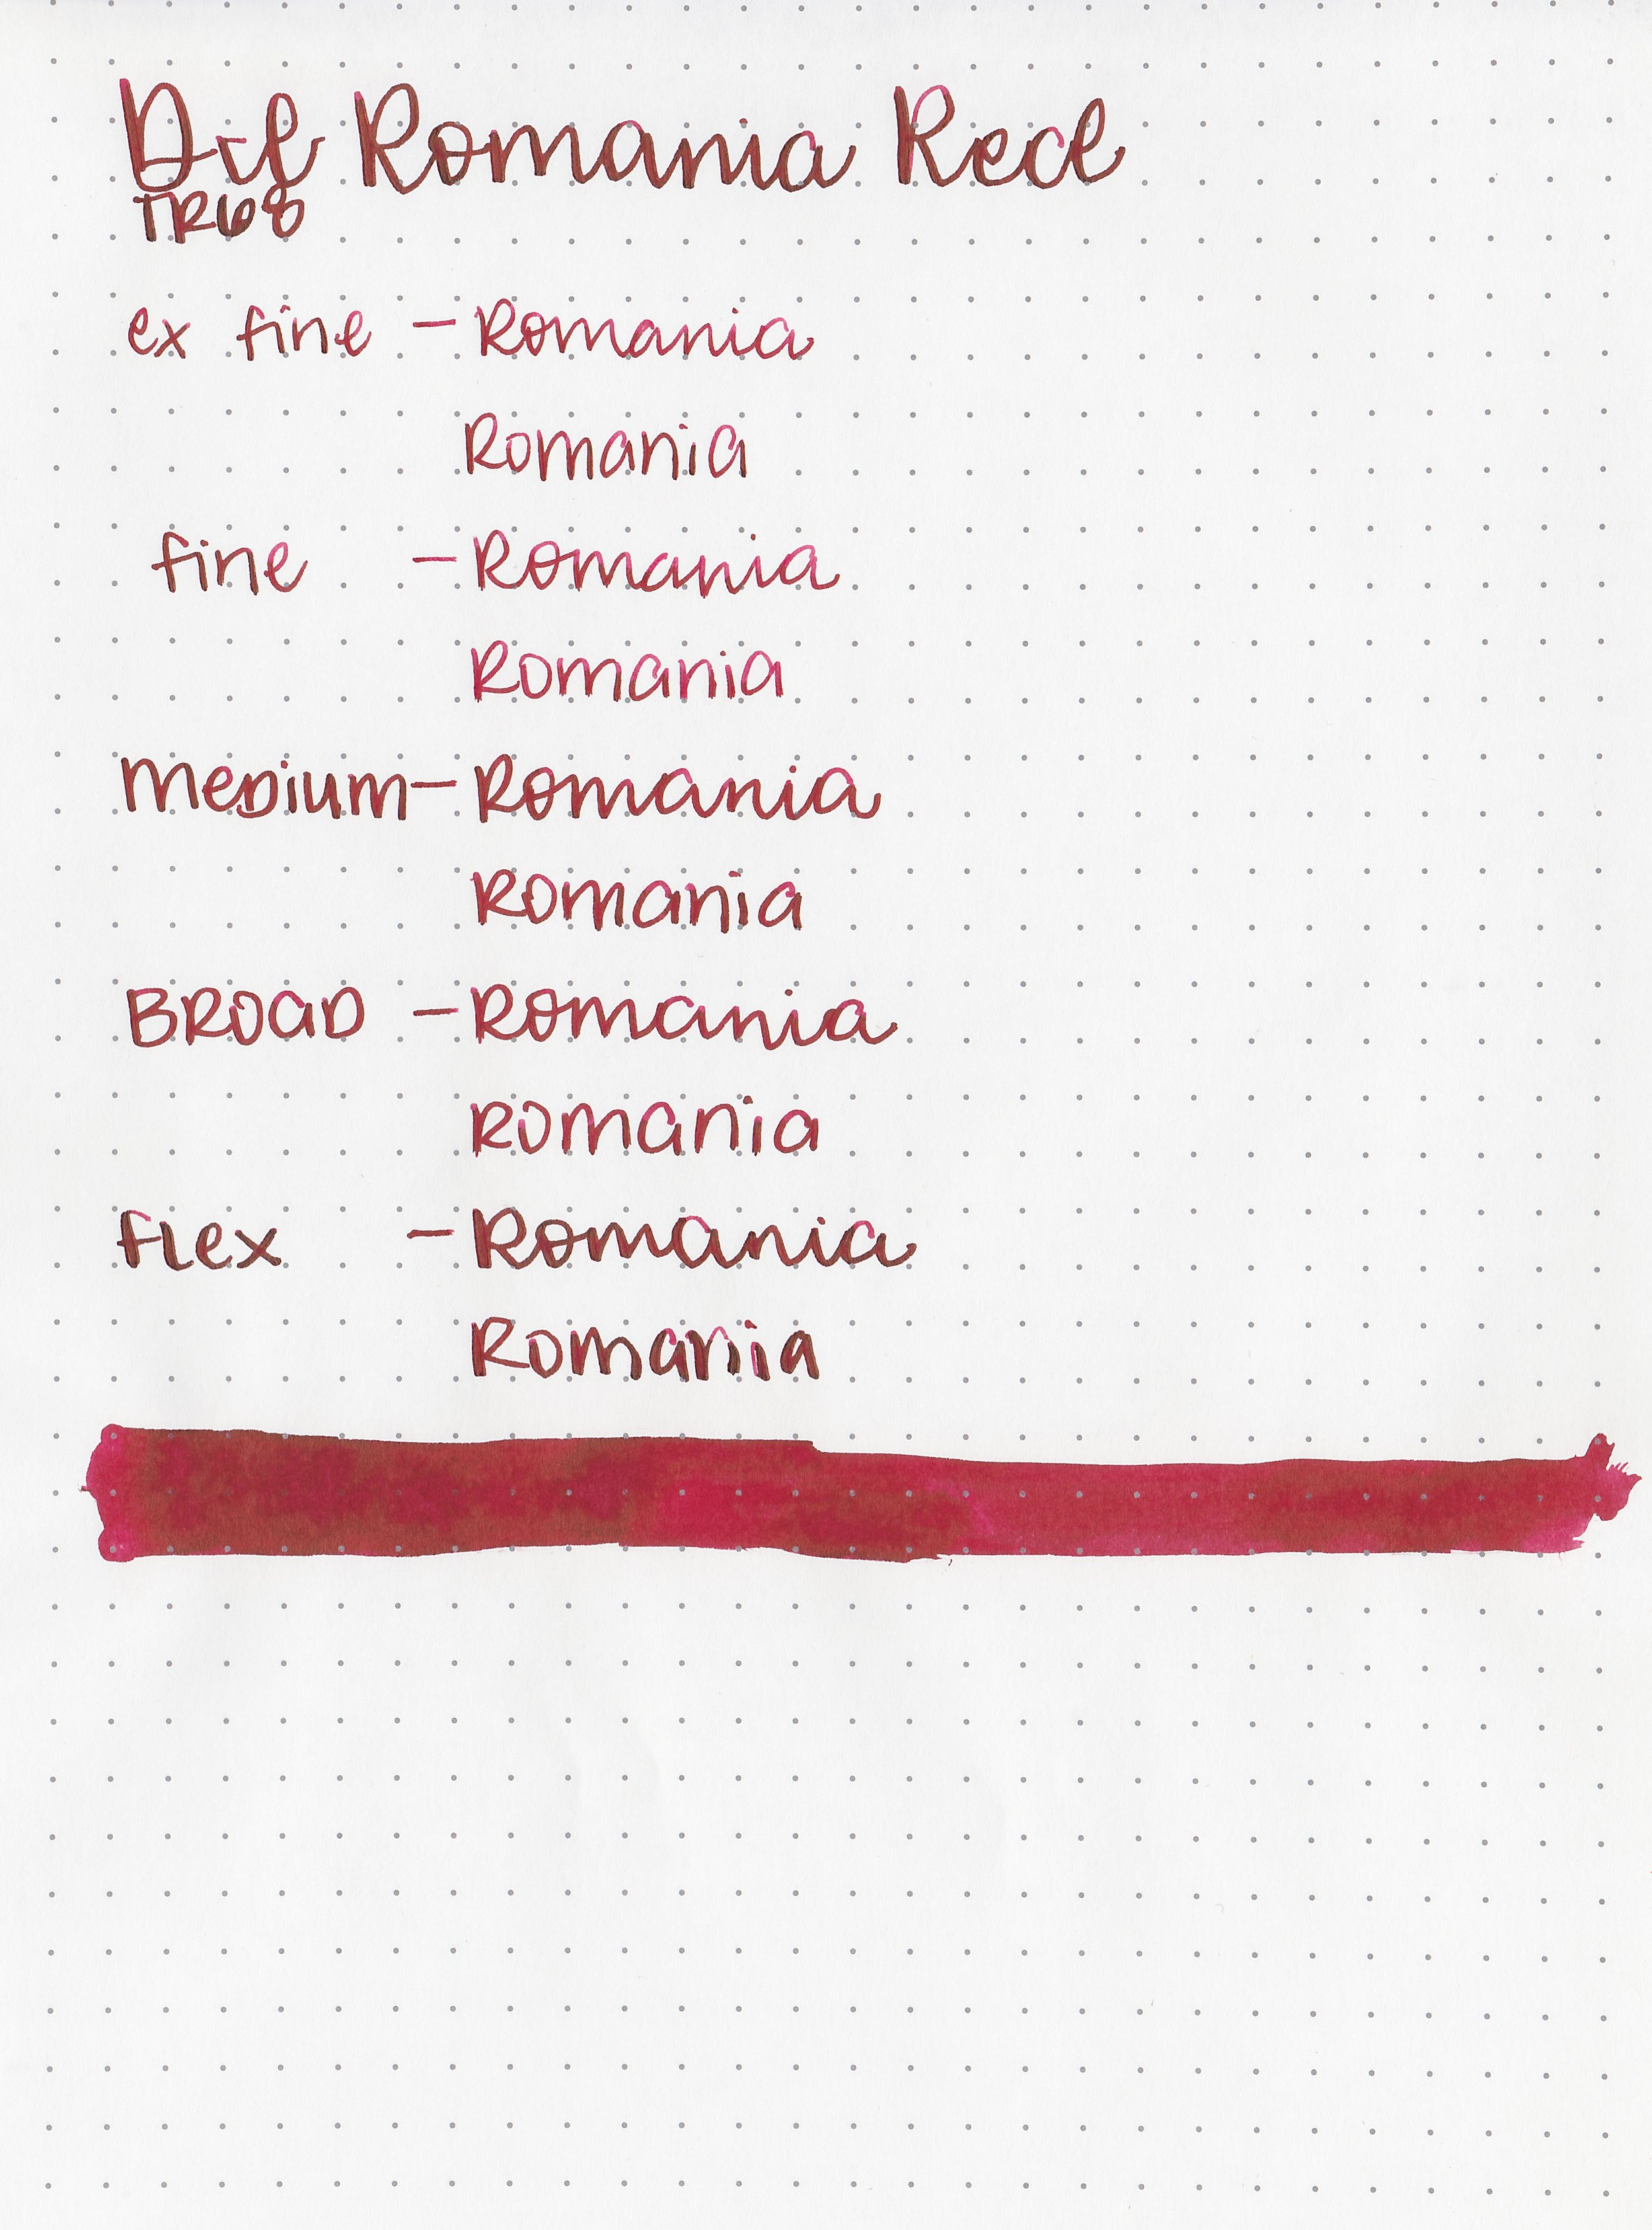 Dil Romania Red
TR68
ex fine - Romania
Romania
fine - Romania
Romania
Medium - Romania
Romania
BROAD - Romania
Romania
flex - Romania
Romania